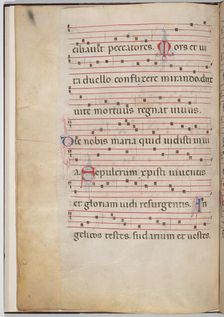 ciliavit peccatores. Mors et vi
ta duello conflixere mirando dux
vite mortuus regnat vivus.
Dic nobis maria quid vidisti in vi
a Sepulcrum xpisti viventis
et gloriam vidi resurgentis. An
gelicos testes sudarium et vestes.